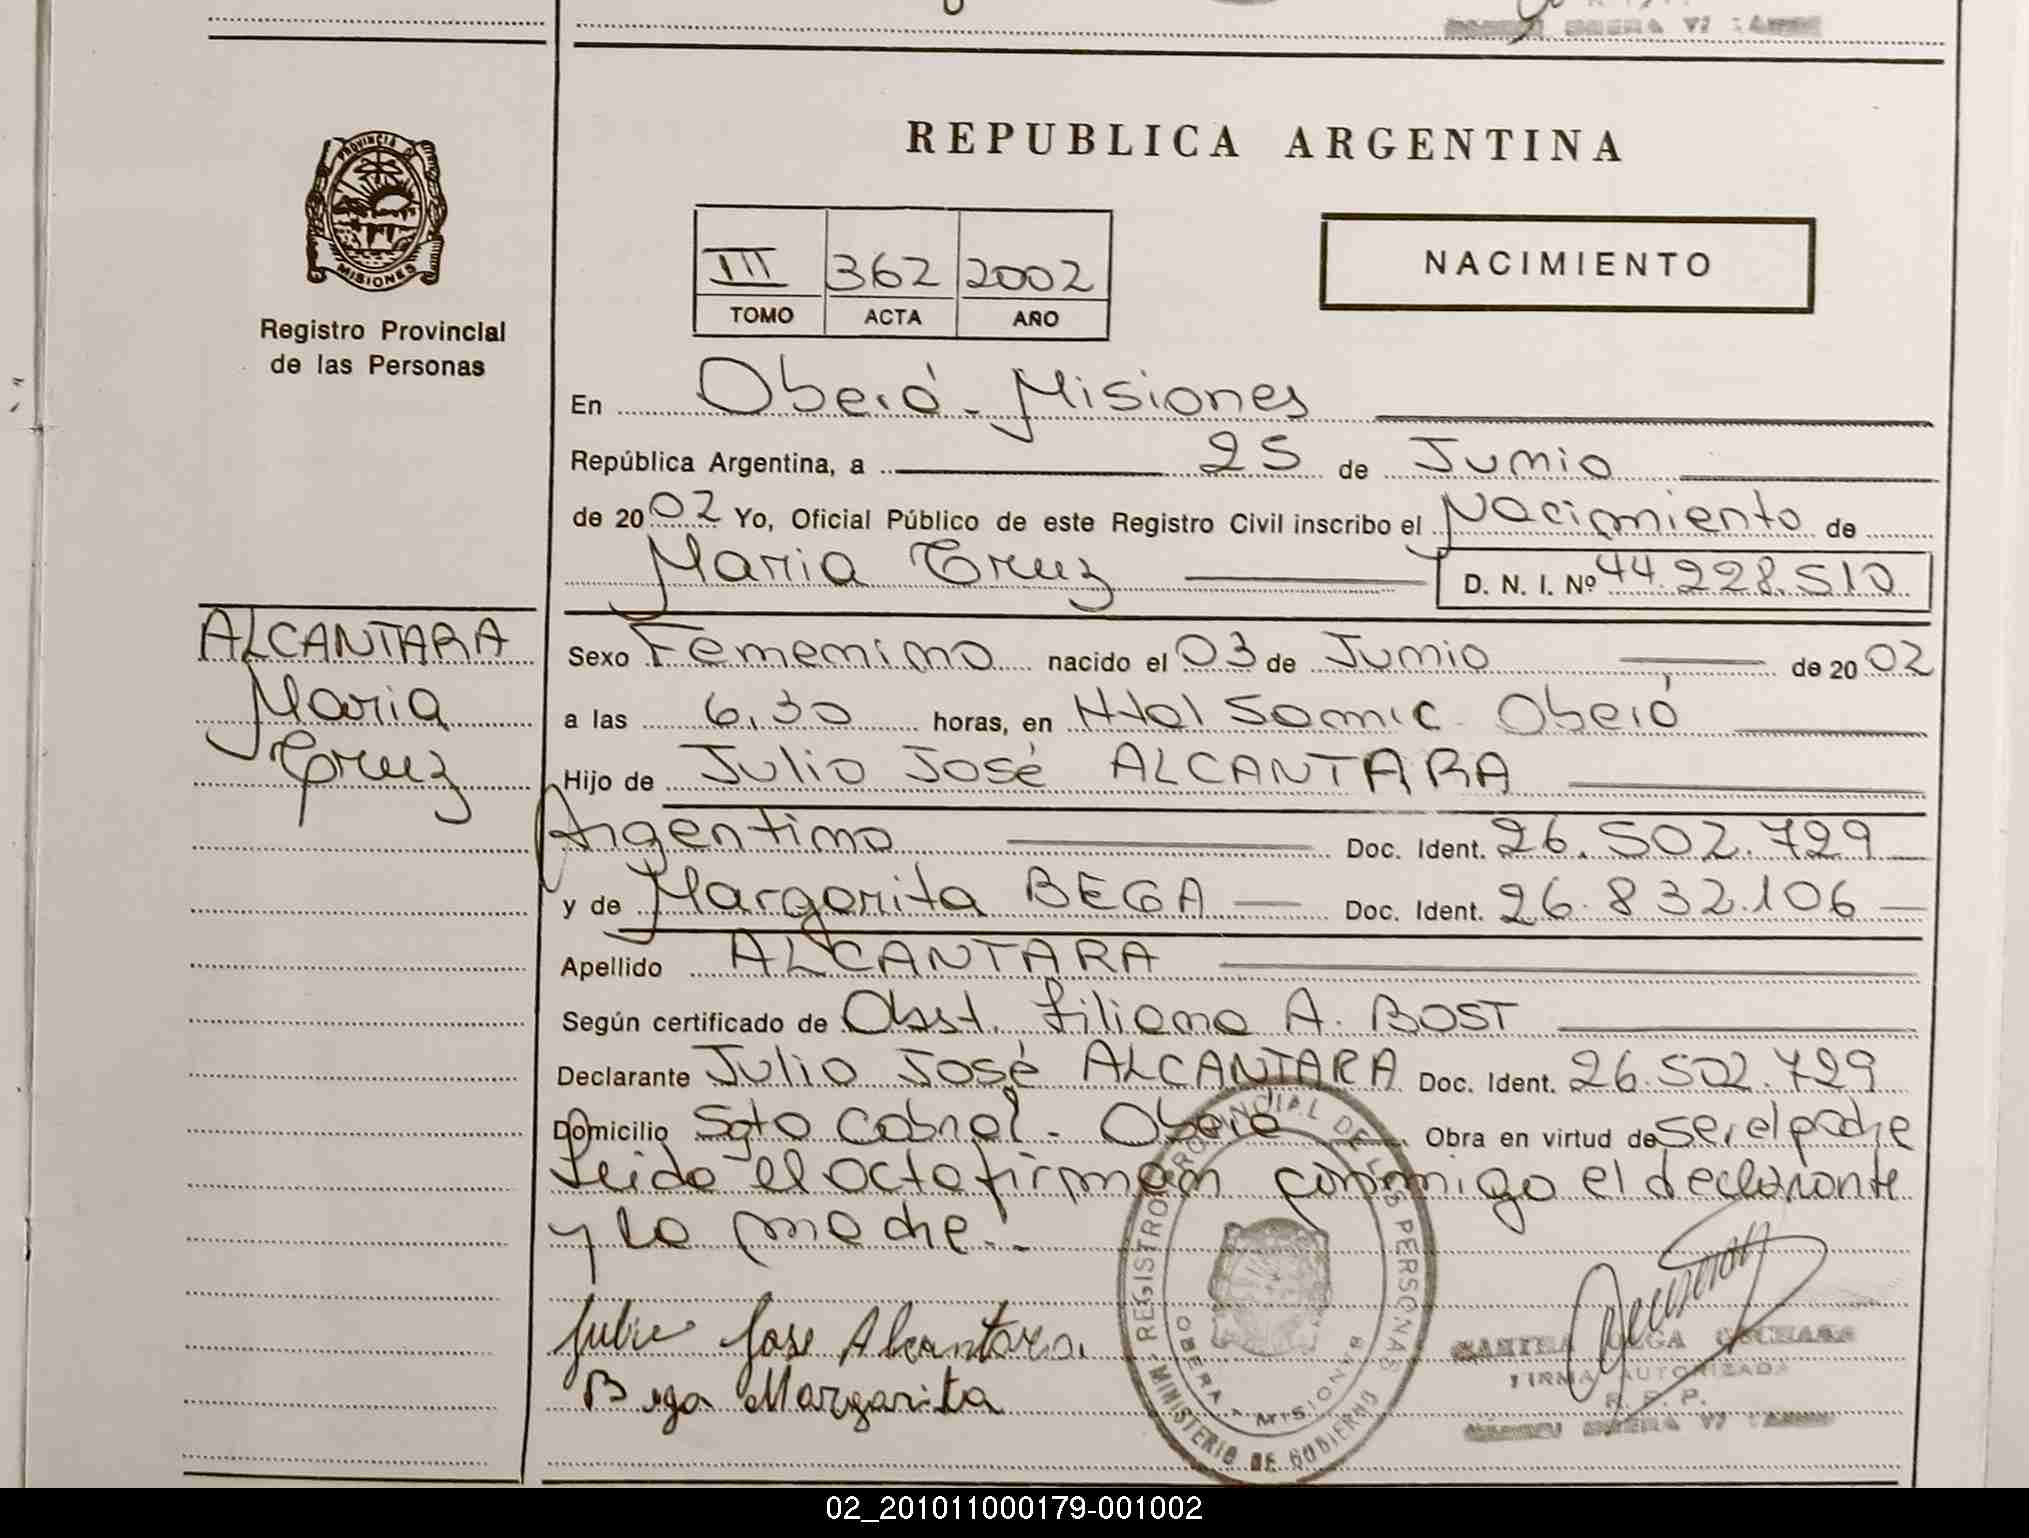 REPUBLICA ARGENTINA
PROVINCIA DE
MISIONES
Registro Provincial
de las Personas
III 362 2002
TOMO ACTA AÑO
NACIMIENTO
En Oberá - Misiones
República Argentina, a 25 de Junio
de 2002 Yo, Oficial Público de este Registro Civil inscribo el Nacimiento de
Maria Cruz D. N. I. Nº 44.228.510
ALCANTARA
Maria
Cruz
Sexo Femenino nacido el 03 de Junio de 2002
a las 6,30 horas, en Htal Samic Oberá
Hijo de Julio José ALCANTARA
Argentino Doc. Ident. 26.502.729
y de Margarita BEGA Doc. Ident. 26.832.106
Apellido ALCANTARA
Según certificado de Obst. Liliana A. BOST
Declarante Julio José ALCANTARA Doc. Ident. 26.502.729
Domicilio Sgto Cabral - Oberá Obra en virtud de ser el padre
Leida el acta firman conmigo el declarante
y la madre.-
Julio Jose Alcantara.
Bega Margarita
REGISTRO PROVINCIAL DE LAS PERSONAS
OBERA - MISIONES
MINISTERIO DE GOBIERNO
OLGA
FIRMA AUTORIZADA
R. P. P.
02_201011000179-001002